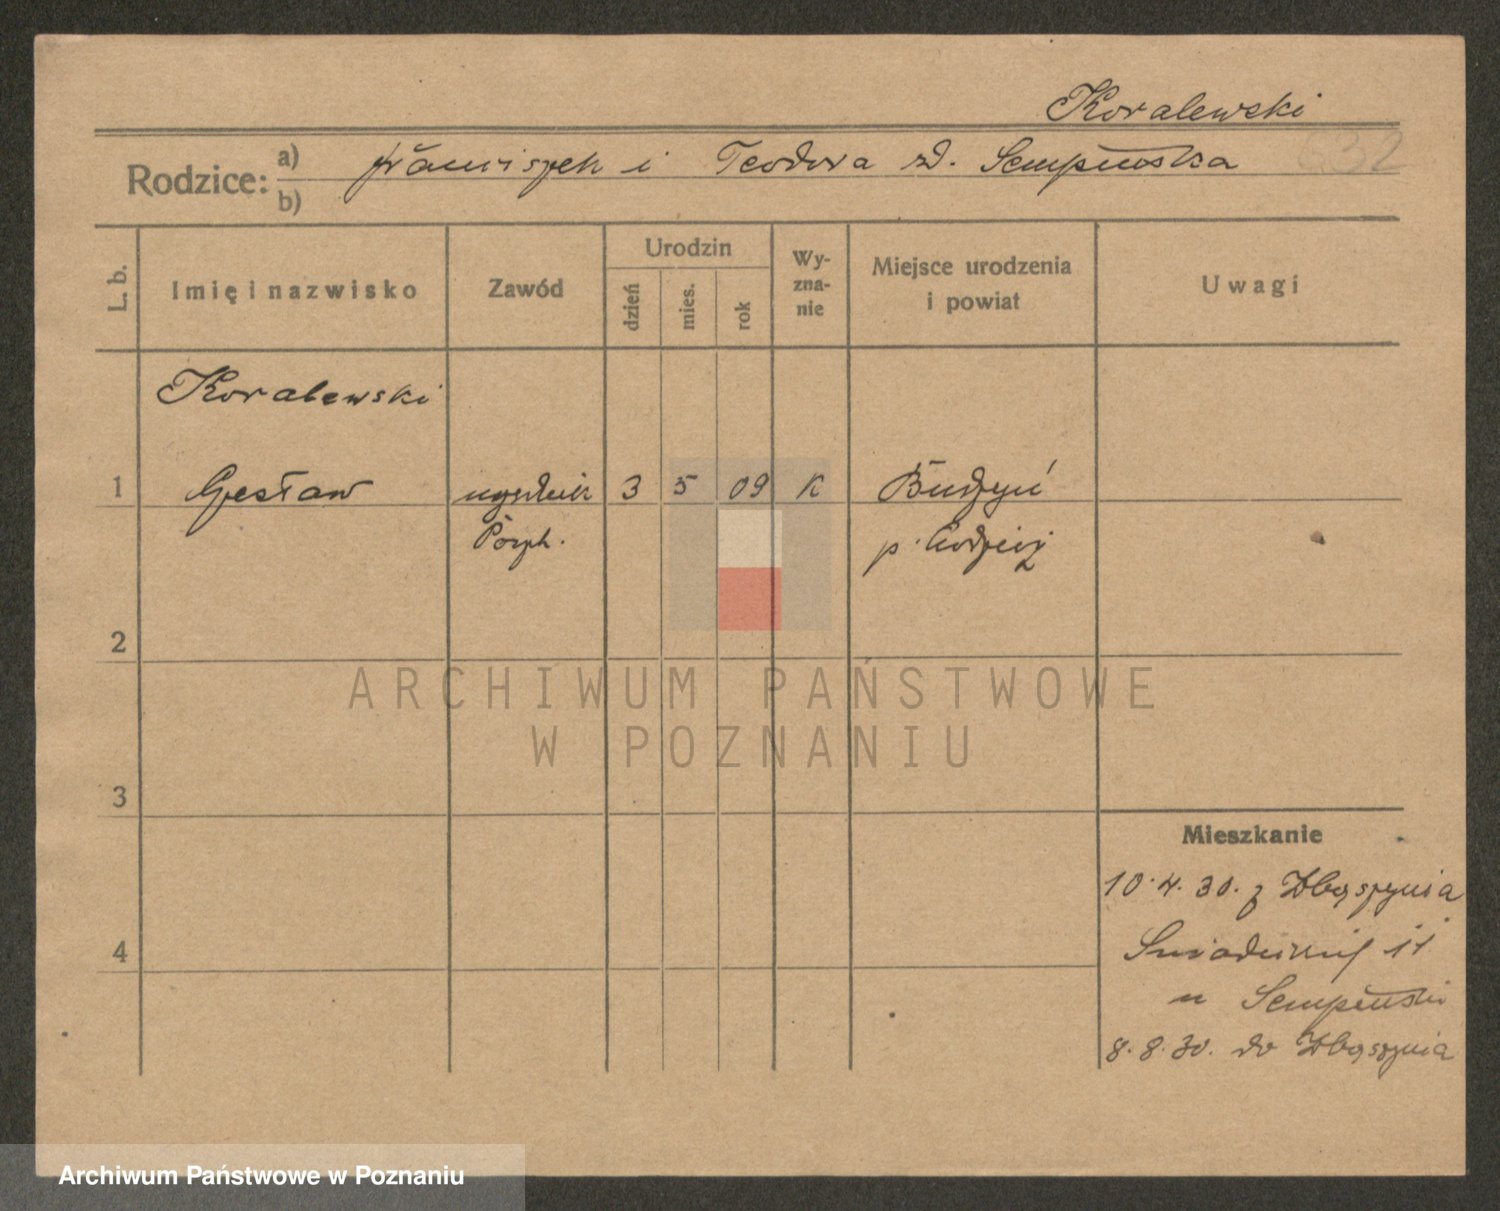 Koralewski
Rodzice: a) Franciszek i Teodora zd. Sempińska 632
b)
L. b. Imię i nazwisko Zawód Urodzin dzień mies. rok Wyznanie Miejsce urodzenia i powiat Uwagi
Koralewski
1 Czesław urzędnik 3 5 09 K Budzyń
p. Chodzież
2
ARCHIWUM PAŃSTWOWE
W POZNANIU
3
Mieszkanie
10.4.30. z Zbąszynia
4
Śniadeckich 11
u Sempiński
8.8.30. do Zbąszynia
Archiwum Państwowe w Poznaniu